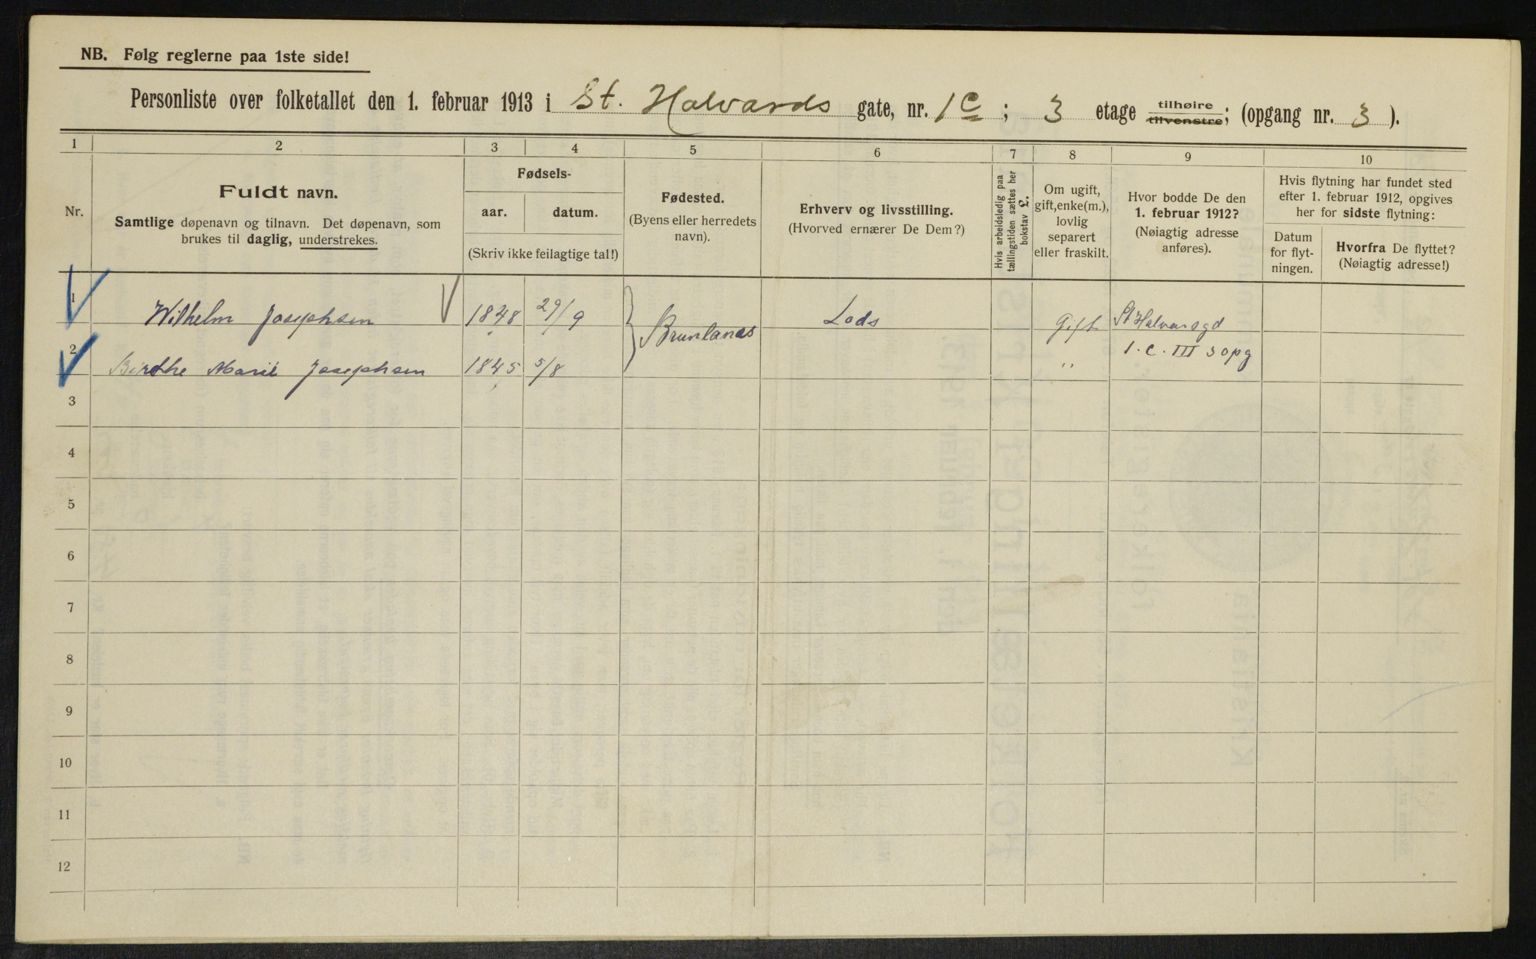 NB. Følg reglerne paa 1ste side!
Personliste over folketallet den 1. februar 1913 i St. Halvards gate, nr. 1c ; 3 etage tilhøire tilvenstre; (opgang nr. 3 ).
1 2 3 4 5 6 7 8 9 10
Nr.
Fuldt navn.
Samtlige døpenavn og tilnavn. Det døpenavn, som
brukes til daglig, understrekes.
Fødsels-
aar. datum.
(Skriv ikke feilagtige tal!)
Fødested.
(Byens eller herredets
navn).
Erhverv og livsstilling.
(Hvorved ernærer De Dem?)
Hvis arbeidsledig paa
tællingstiden sættes her
bokstav L.
Om ugift,
gift,enke(m.),
lovlig
separert
eller fraskilt.
Hvor bodde De den
1. februar 1912?
(Nøiagtig adresse
anføres).
Hvis flytning har fundet sted
efter 1. februar 1912, opgives
her for sidste flytning:
Datum
for flyt-
ningen.
Hvorfra De flyttet?
(Nøiagtig adresse!)
1 Wilhelm Josephsen 1848 29/9 Brunlanæs Lods Gift St Halvarsgd
2 Birthe Marie Josephsen 1845 5/8 " 1.c. III 3 opg
3
4
5
6
7
8
9
10
11
12